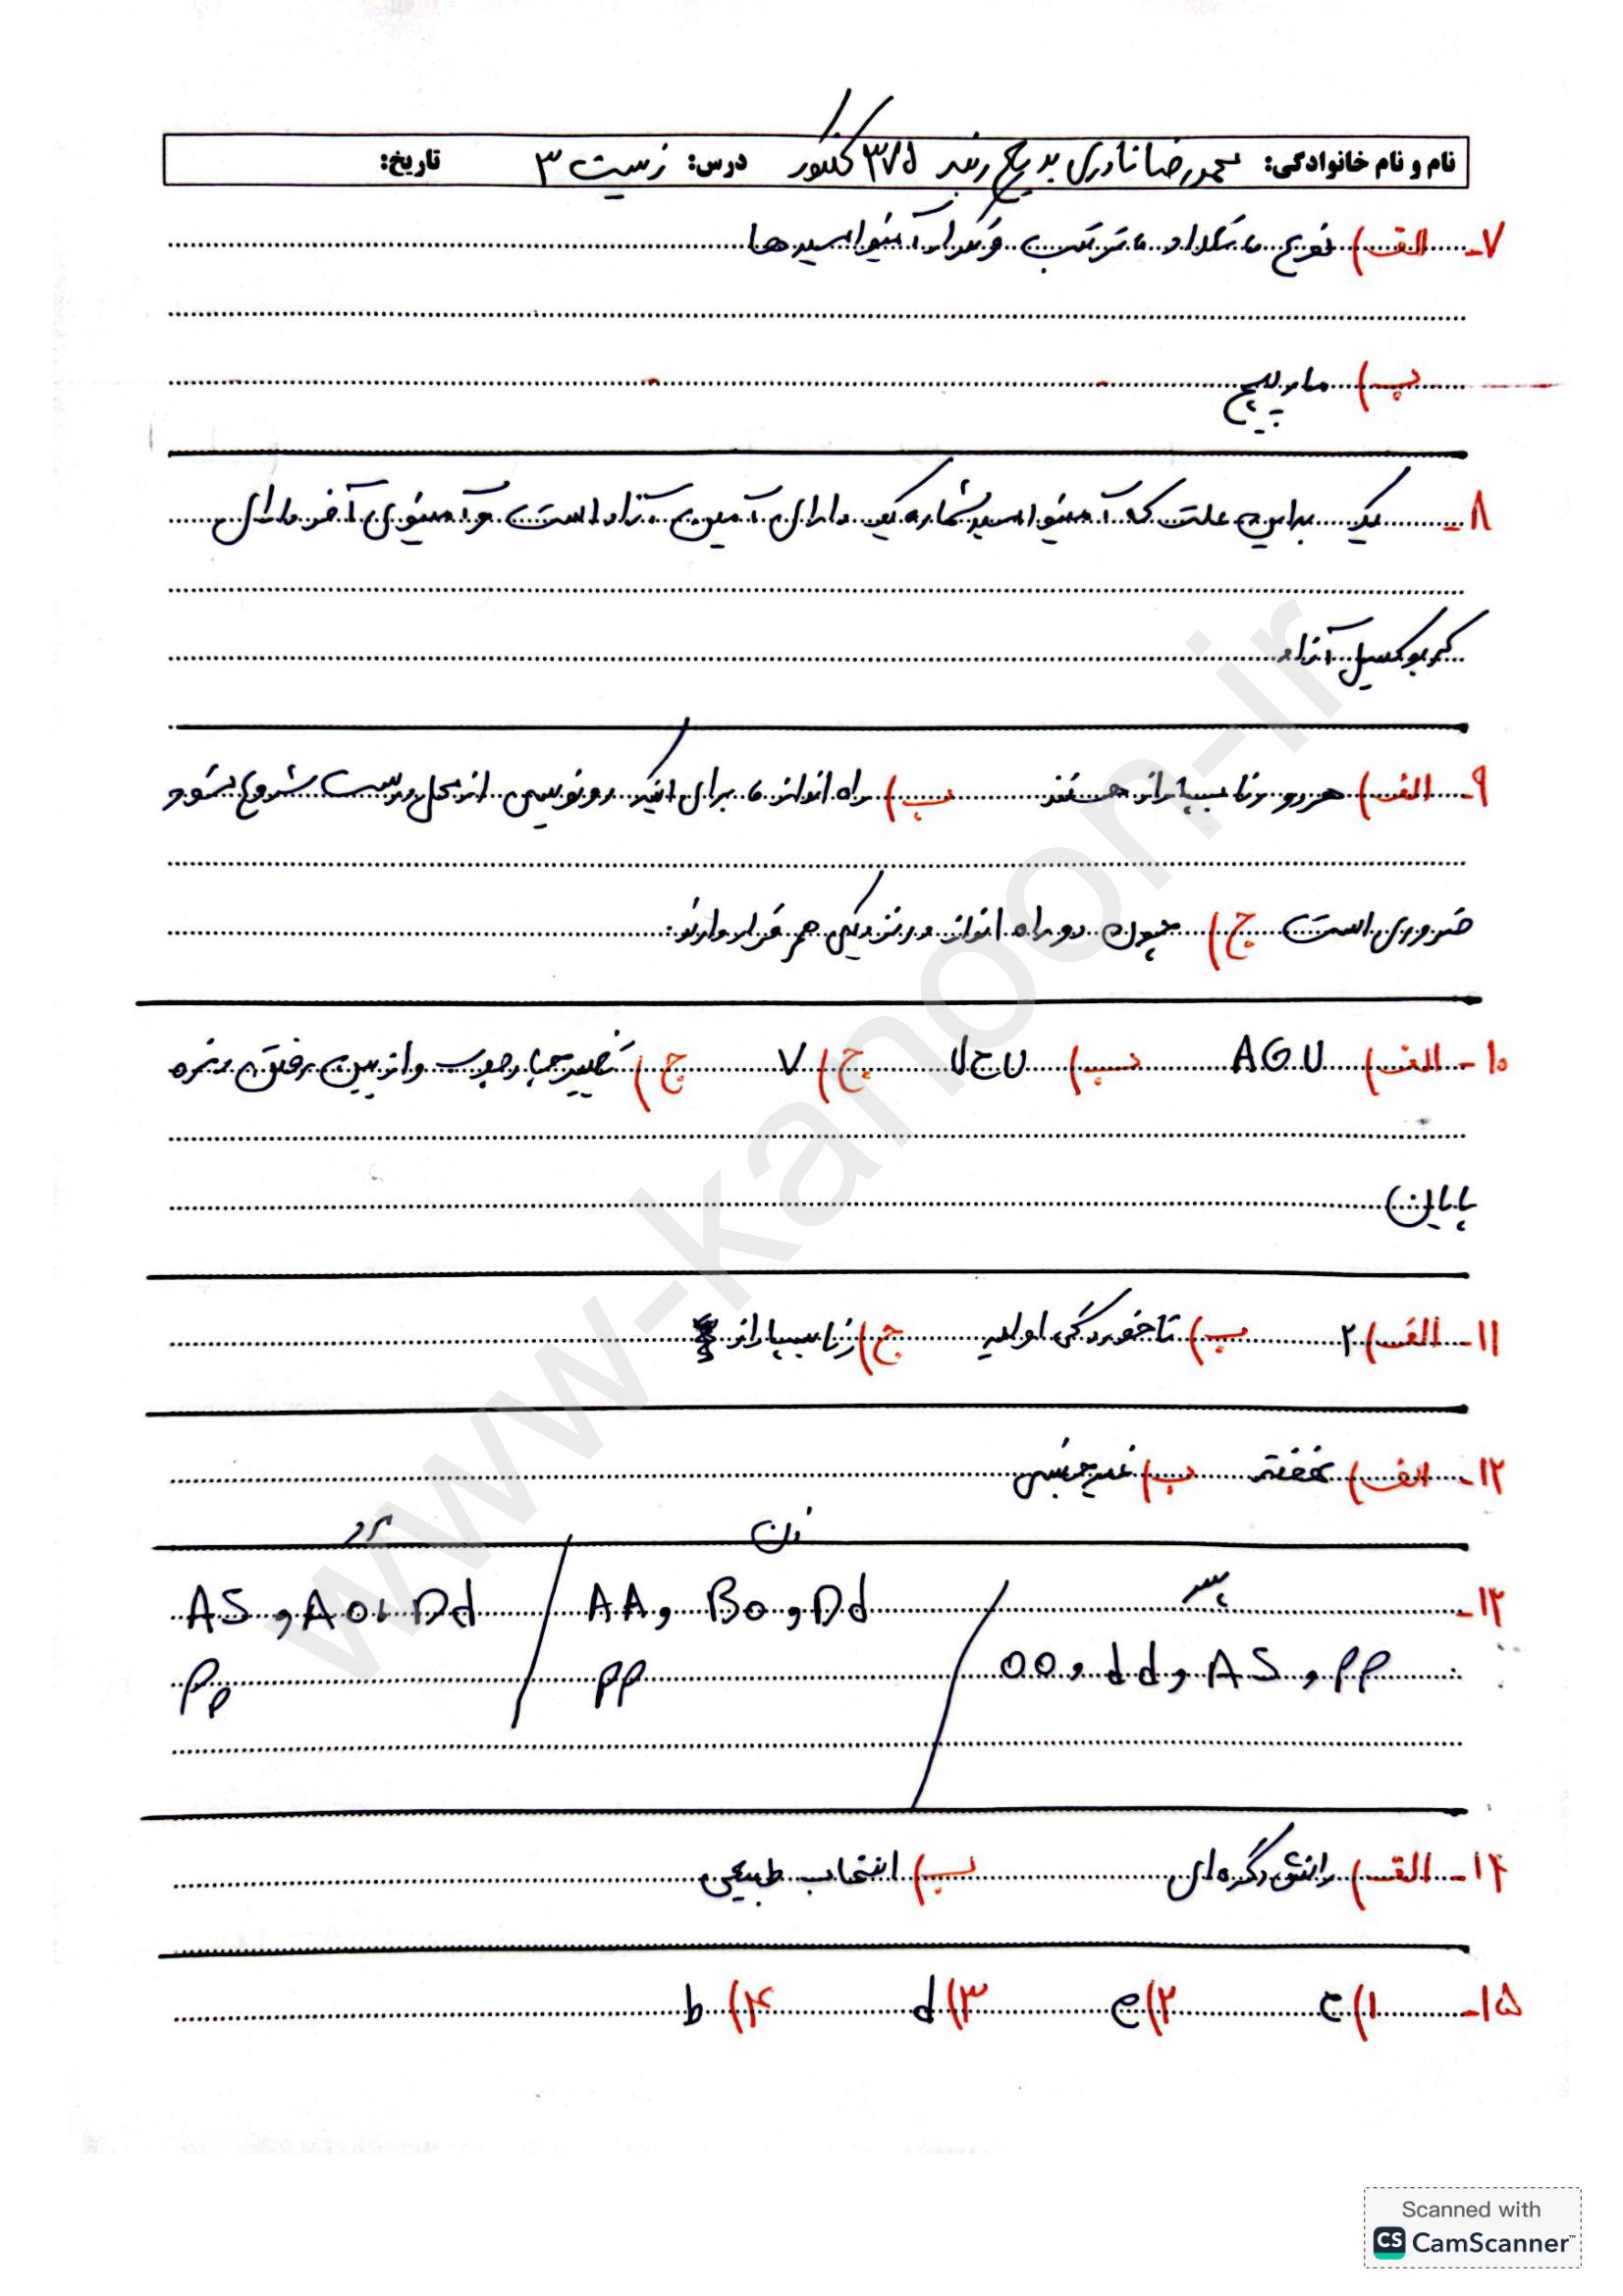 نام و نام خانوادگی: محمدرضا نادری بدیع رتبه ۳۷۵ کنکور درس: زیست ۳ تاریخ:
۷- الف) نوع، تعداد، ترتیب و تکرار آمینواسیدها
ب) مارپیچ
۸- یک برای علت که آمینواسید شماره یک دارای آمین آزاد است و آمینوی آخر دارای
کربوکسیل آزاد
۹- الف) هر دو رنابسپاراز هستند ب) راه انداز، برای اینکه رونویسی از محل درست شروع بشود
ضروری است ج) چون دو راه انداز در نزدیکی هم قرار دارند.
۱۰- الف) AGU ب) UCU ج) ۷ ج) تغییر چارچوب و از بین رفتن رمزه
پایان
۱۱- الف) ۲ ب) تاخوردگی اولیه ج) رنابسپاراز ۳
۱۲- الف) نهفته ب) غیرجنسی
زن مرد
۱۳- پسر AA و BO و Dd AS و AO، Dd
OO و dd و AS و PP PP Pp
۱۴- الف) رانش دگره‌ای ب) انتخاب طبیعی
۱۵- ۱) c ۲) e ۳) d ۴) b
www-kanoon-ir
Scanned with
CS CamScanner™